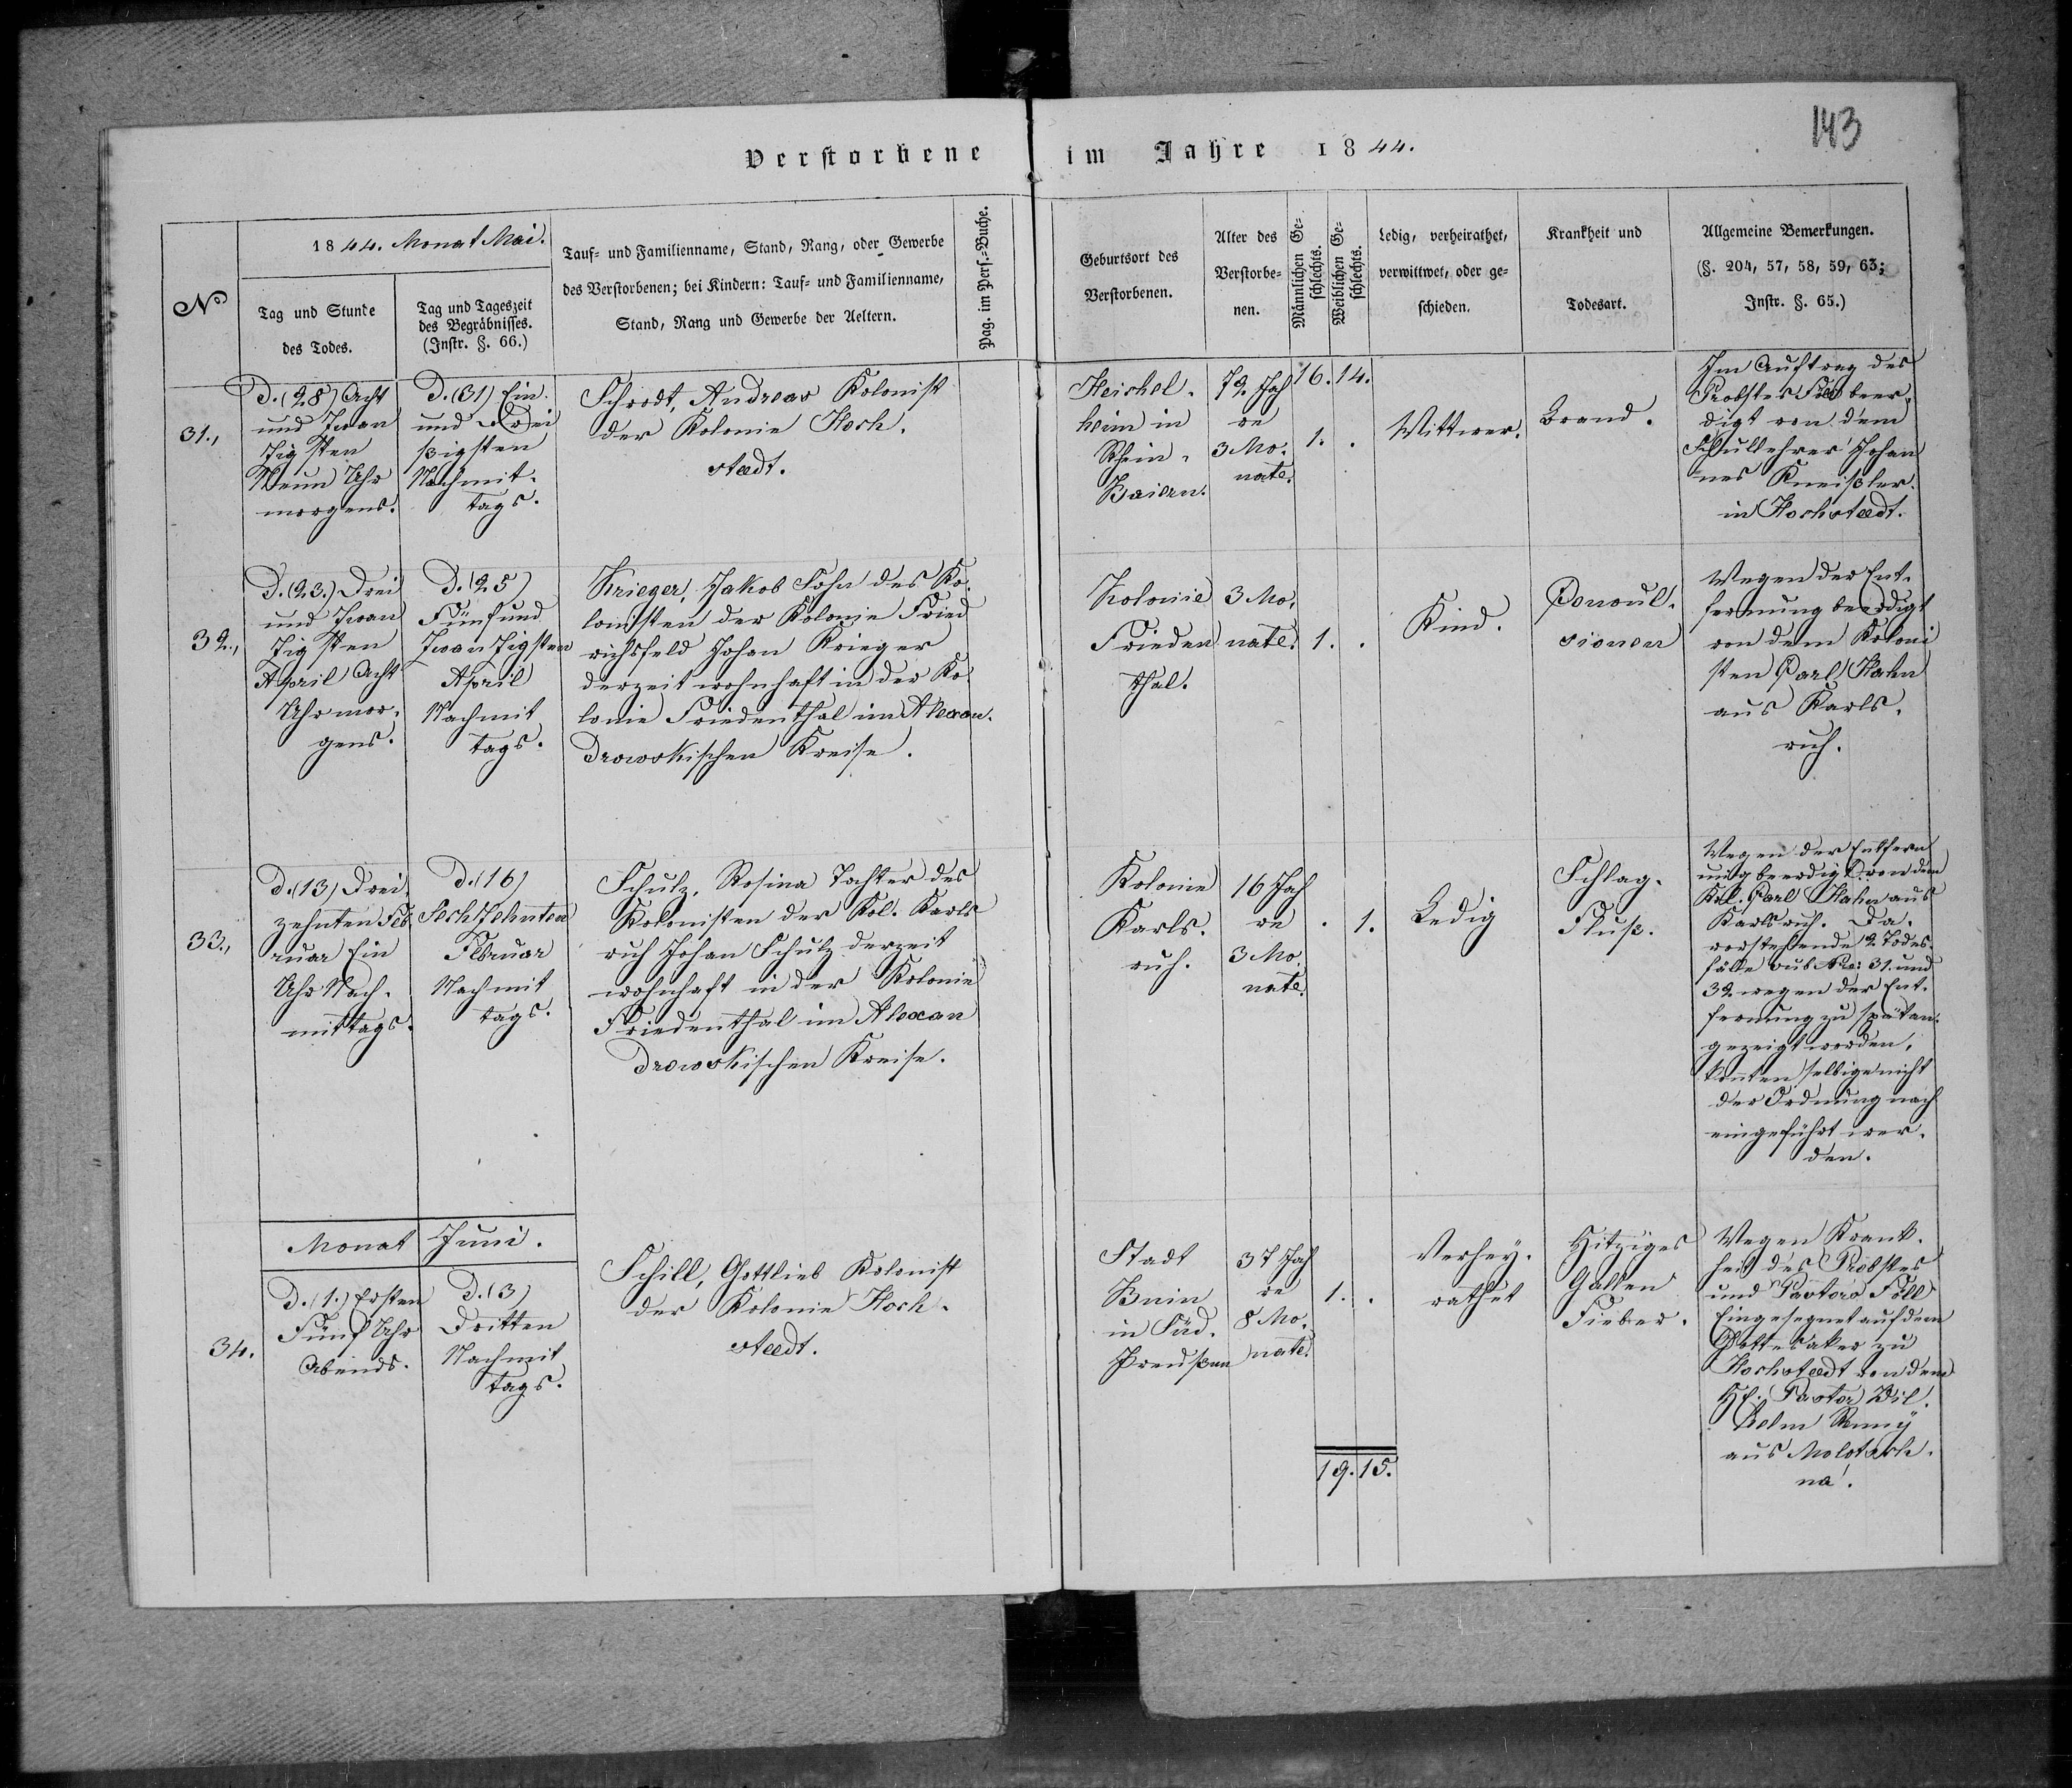 143
Verstorbene im Jahre 1844.
1844. Monat Mai.
No
Tag und Stunde
des Todes.
Tag und Tageszeit
des Begräbnisses.
(Instr. §. 66.)
Tauf- und Familienname, Stand, Rang, oder Gewerbe
des Verstorbenen; bei Kindern: Tauf- und Familienname,
Stand, Rang und Gewerbe der Aeltern.
Pag. im Pers.-Buche.
Geburtsort des
Verstorbenen.
Alter des
Verstorbe-
nen.
Männlichen Ge-
schlechts.
Weiblichen Ge-
schlechts.
Ledig, verheirathet,
verwittwet, oder ge-
schieden.
Krankheit und
Todesart.
Allgemeine Bemerkungen.
(§. 204, 57, 58, 59, 63;
Instr. §. 65.)
31.,
D. (28) Acht
und Zwan
zigsten
Neun Uhr
morgens.
D. (31) Ein
und Drei
ßigsten
Nachmit-
tags.
Schrodt, Andreas Kolonist
der Kolonie Hoch.
staedt.
heim in
Rhein-
Baiern.
72. Jah
re
3 Mo-
nate.
16. 14.
1. .
Wittwer.
Brand.
Im Auftrag des
Probstes beer-
digt von dem
Schullehrer Johan
nes Kneißler
in Hochstaedt.
32.,
D. (23.) Drei
und Zwan
zigsten
April Acht
Uhr mor-
gens.
D. (25)
Fünfund
Zwanzigsten
April
Nachmit
tags.
Krieger, Jakob Sohn des Ko-
lonisten der Kolonie Fried
richsfeld Johan Krieger
derzeit wohnhaft in der Ko-
lonie Friedenthal im Alexan-
drowskischen Kreise.
Kolonie
Frieden
thal.
3 Mo-
nate.
1. .
Kind.
Convul-
sionen
Wegen der Ent-
fernung beerdigt
von dem Koloni
sten Carl Hahn
aus Karls-
ruh.
33.,
D. (13) Drei-
zehnten Feb
ruar Ein
Uhr Nach-
mittags.
D. (16)
Sechzehnten
Februar
Nachmit
tags.
Schulz, Rosina Tochter des
Kolonisten der Kol. Karls
ruh Johan Schulz derzeit
wohnhaft in der Kolonie
Friedenthal im Alexan
drowskischen Kreise.
Kolonie
Karls-
ruh.
16 Jah
re
3 Mo-
nate.
. 1.
Ledig
Schlag-
Fluß.
Wegen der Entfern
ung beerdigt von dem
Kol. Carl Hahn aus
Karlsruh. Da
vorstehende 2 Todes-
fälle sub Nro: 31. und
32. wegen der Ent-
fernung zu spät an-
gezeigt worden,
konnten selbige nicht
der Ordnung nach
eingeführt wer-
den.
Monat Juni.
34.
D. (1.) Ersten
Fünf Uhr
Abends.
D. (3)
Dritten
Nachmit
tags.
Schill, Gottlieb Kolonist
der Kolonie Hoch-
staedt.
Stadt
Bnin
in Süd-
Preußen
37 Jah
re
8 Mo-
nate.
1. .
Verhey-
rathet
Hitziges
Gallen
Fieber.
Wegen Krank-
heit des Probstes
und Pastors Föll
Eingesegnet auf dem
Gottesaker zu
Hochstaedt von dem
H. Pastor Wil-
helm
aus Molotsch-
na!
19. 15.